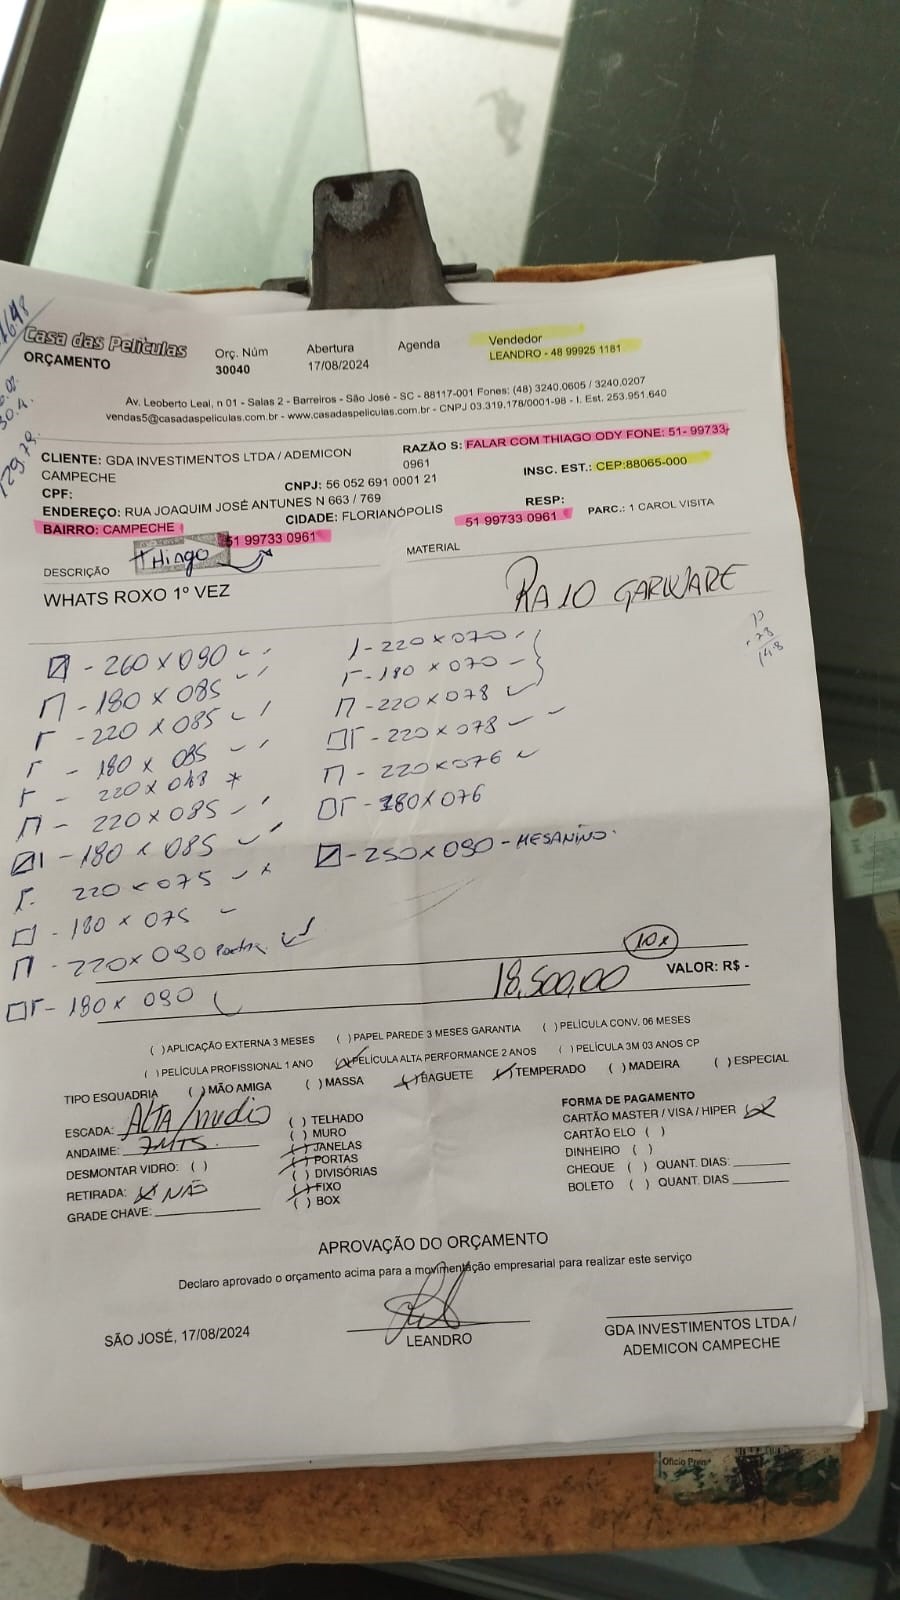 Casa das Películas
ORÇAMENTO
Orç. Núm
30040
Abertura
17/08/2024
Agenda
Vendedor
LEANDRO - 48 99925 1181
Av. Leoberto Leal, n 01 - Salas 2 - Barreiros - São José - SC - 88117-001 Fones: (48) 3240.0605 / 3240.0207
vendas5@casadaspeliculas.com.br - www.casadaspeliculas.com.br - CNPJ 03.319.178/0001-98 - I. Est. 253.951.640
CLIENTE: GDA INVESTIMENTOS LTDA / ADEMICON
CAMPECHE
RAZÃO S: FALAR COM THIAGO ODY FONE: 51- 99733
0961
CPF:
CNPJ: 56 052 691 0001 21
INSC. EST.: CEP:88065-000
ENDEREÇO: RUA JOAQUIM JOSÉ ANTUNES N 663 / 769
BAIRRO: CAMPECHE
CIDADE: FLORIANÓPOLIS
RESP:
51 99733 0961
PARC.: 1 CAROL VISITA
51 99733 0961
THiago
DESCRIÇÃO
MATERIAL
WHATS ROXO 1º VEZ
RA 10 GARWARE
- 260 x 090
- 180 x 085
- 220 x 085
- 180 x 085
- 220 x 048 *
- 220 x 085
- 180 x 085
220 x 075
- 180 x 075
- 220 x 090 Porta
- 180 x 090
- 220 x 070
- 180 x 070
- 220 x 078
- 220 x 078
- 220 x 076
- 180 x 076
- 250 x 090 - MESANINO
10x
18.500,00
VALOR: R$ -
( ) APLICAÇÃO EXTERNA 3 MESES ( ) PAPEL PAREDE 3 MESES GARANTIA ( ) PELÍCULA CONV. 06 MESES
( ) PELÍCULA PROFISSIONAL 1 ANO (X) PELÍCULA ALTA PERFORMANCE 2 ANOS ( ) PELÍCULA 3M 03 ANOS CP
TIPO ESQUADRIA ( ) MÃO AMIGA ( ) MASSA (X) BAGUETE (X) TEMPERADO ( ) MADEIRA ( ) ESPECIAL
ESCADA: ALTA/medio
ANDAIME: 7 MTS.
DESMONTAR VIDRO: ( )
RETIRADA: (X) NÃO
GRADE CHAVE:
( ) TELHADO
( ) MURO
(X) JANELAS
(X) PORTAS
( ) DIVISÓRIAS
(X) FIXO
( ) BOX
FORMA DE PAGAMENTO
CARTÃO MASTER / VISA / HIPER (X)
CARTÃO ELO ( )
DINHEIRO ( )
CHEQUE ( ) QUANT. DIAS:
BOLETO ( ) QUANT. DIAS
APROVAÇÃO DO ORÇAMENTO
Declaro aprovado o orçamento acima para a movimentação empresarial para realizar este serviço
SÃO JOSÉ, 17/08/2024
LEANDRO
GDA INVESTIMENTOS LTDA /
ADEMICON CAMPECHE